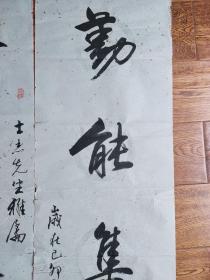 勤能集
歲在己卯
士杰先生雅屬